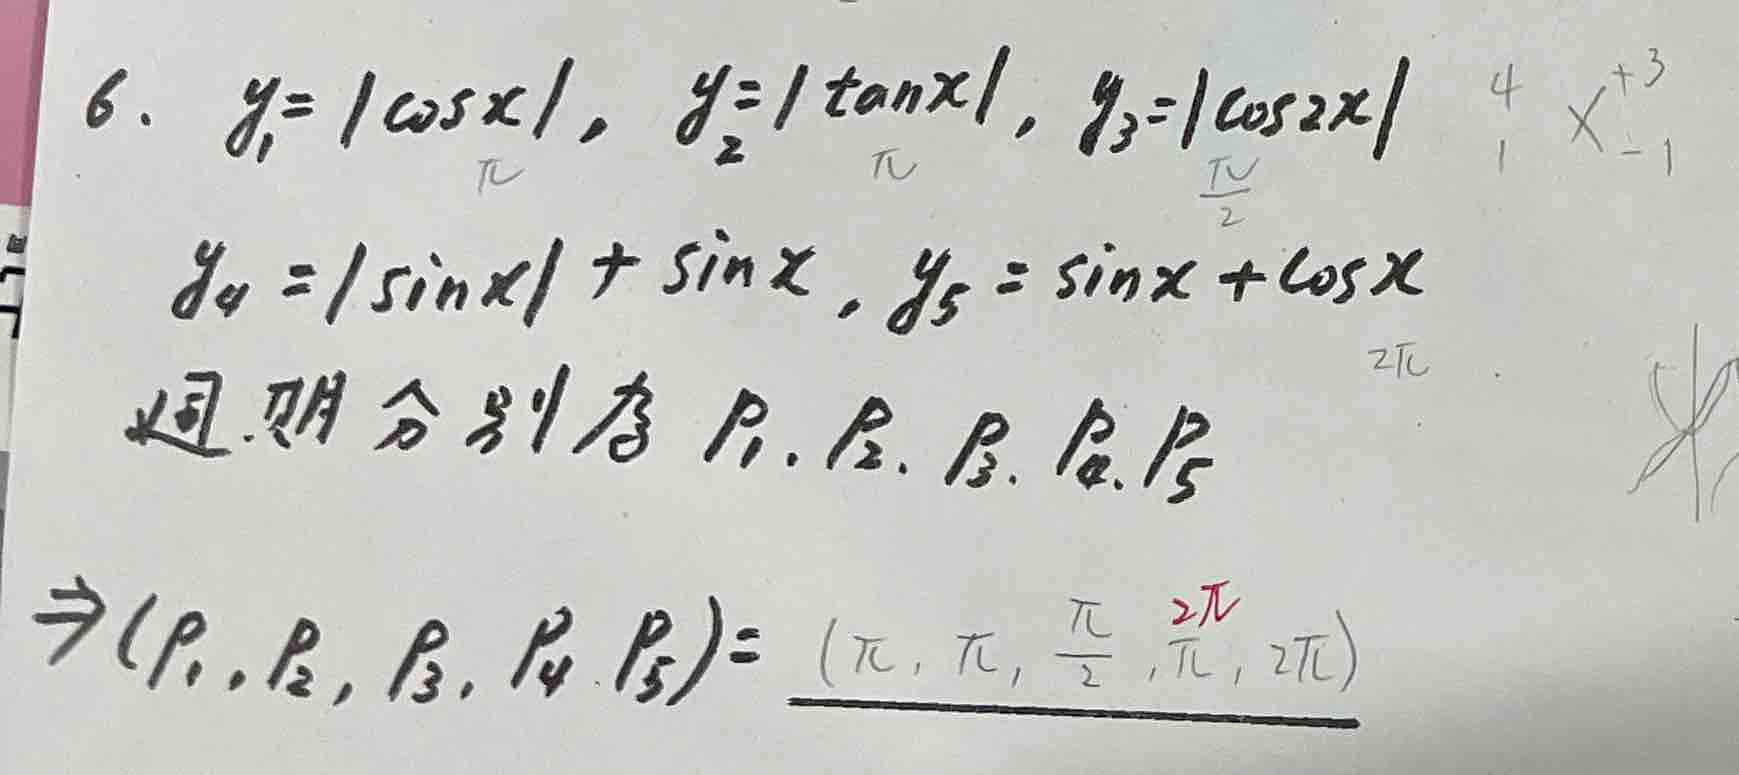 6. y₁=|cosx|, y₂=|tanx|, y₃=|cos2x| 4 x +3
π π π/2 1 -1
y₄=|sinx|+sinx, y₅=sinx+cosx
2π
週期分別為 P₁、P₂、P₃、P₄、P₅
2π
⇒(P₁, P₂, P₃, P₄, P₅)= (π, π, π/2, π, 2π)